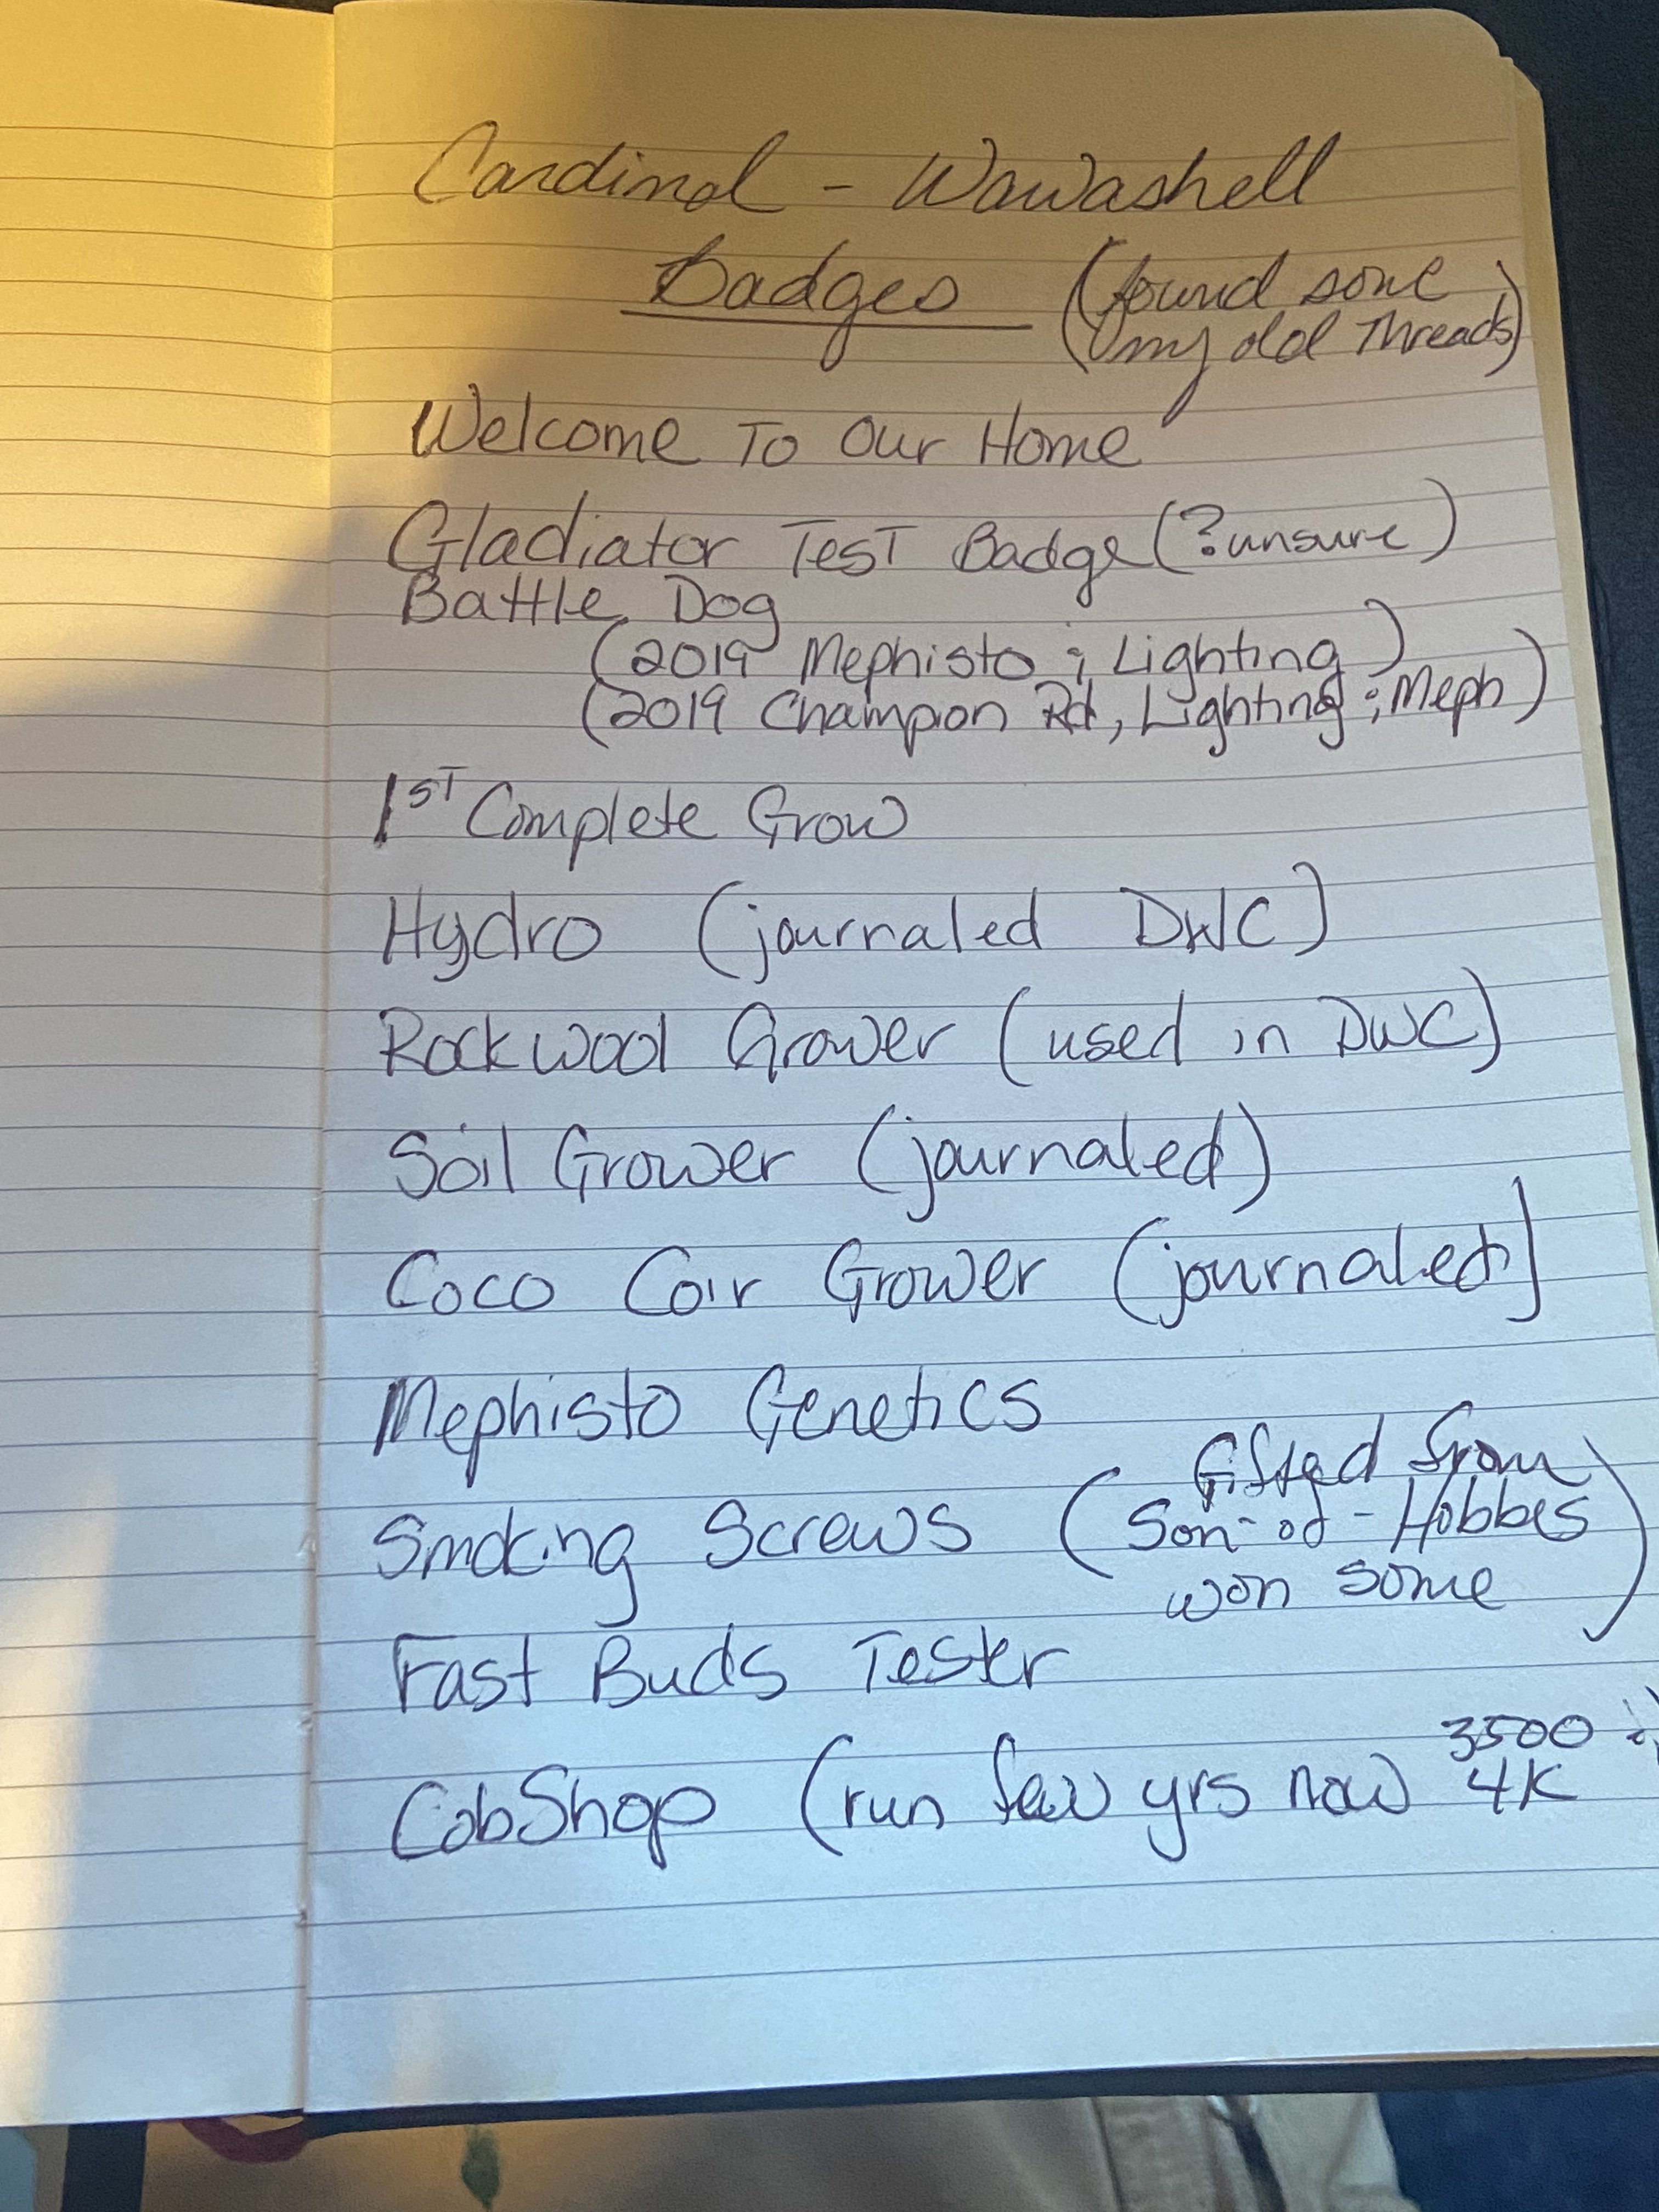 Cardinal - Wawashell
Badges (found some
my old Threads)
Welcome To Our Home
Gladiator Test Badge (?unsure)
Battle Dog
(2019 Mephisto ; Lighting)
(2019 Champion Rd, Lighting ; Meph)
1ST Complete Grow
Hydro (journaled DWC)
Rockwool Grower (used in DWC)
Soil Grower (journaled)
Coco Coir Grower (journaled]
Mephisto Genetics
Smoking Screws (Gifted from
Son-of-Hobbes
won some)
Fast Buds Tester
CobShop (run few yrs now 3500
4K